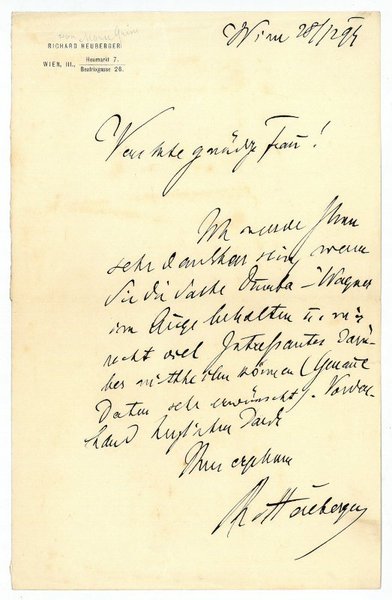 RICHARD HEUBERGER
WIEN, III., Heumarkt 7.
Beatrixgasse 26.
Wien 28/12 94
Verehrte gnädige Frau!
Ich würde Ihnen
sehr dankbar sein, wenn
Sie die Sache Dumba-Wagner
im Auge behalten u. mir
recht viel Interessantes darü-
ber mittheilen können (Genaue
Daten sehr erwünscht). Vorder-
hand herzlichen Dank
Ihr ergebener
R Heuberger